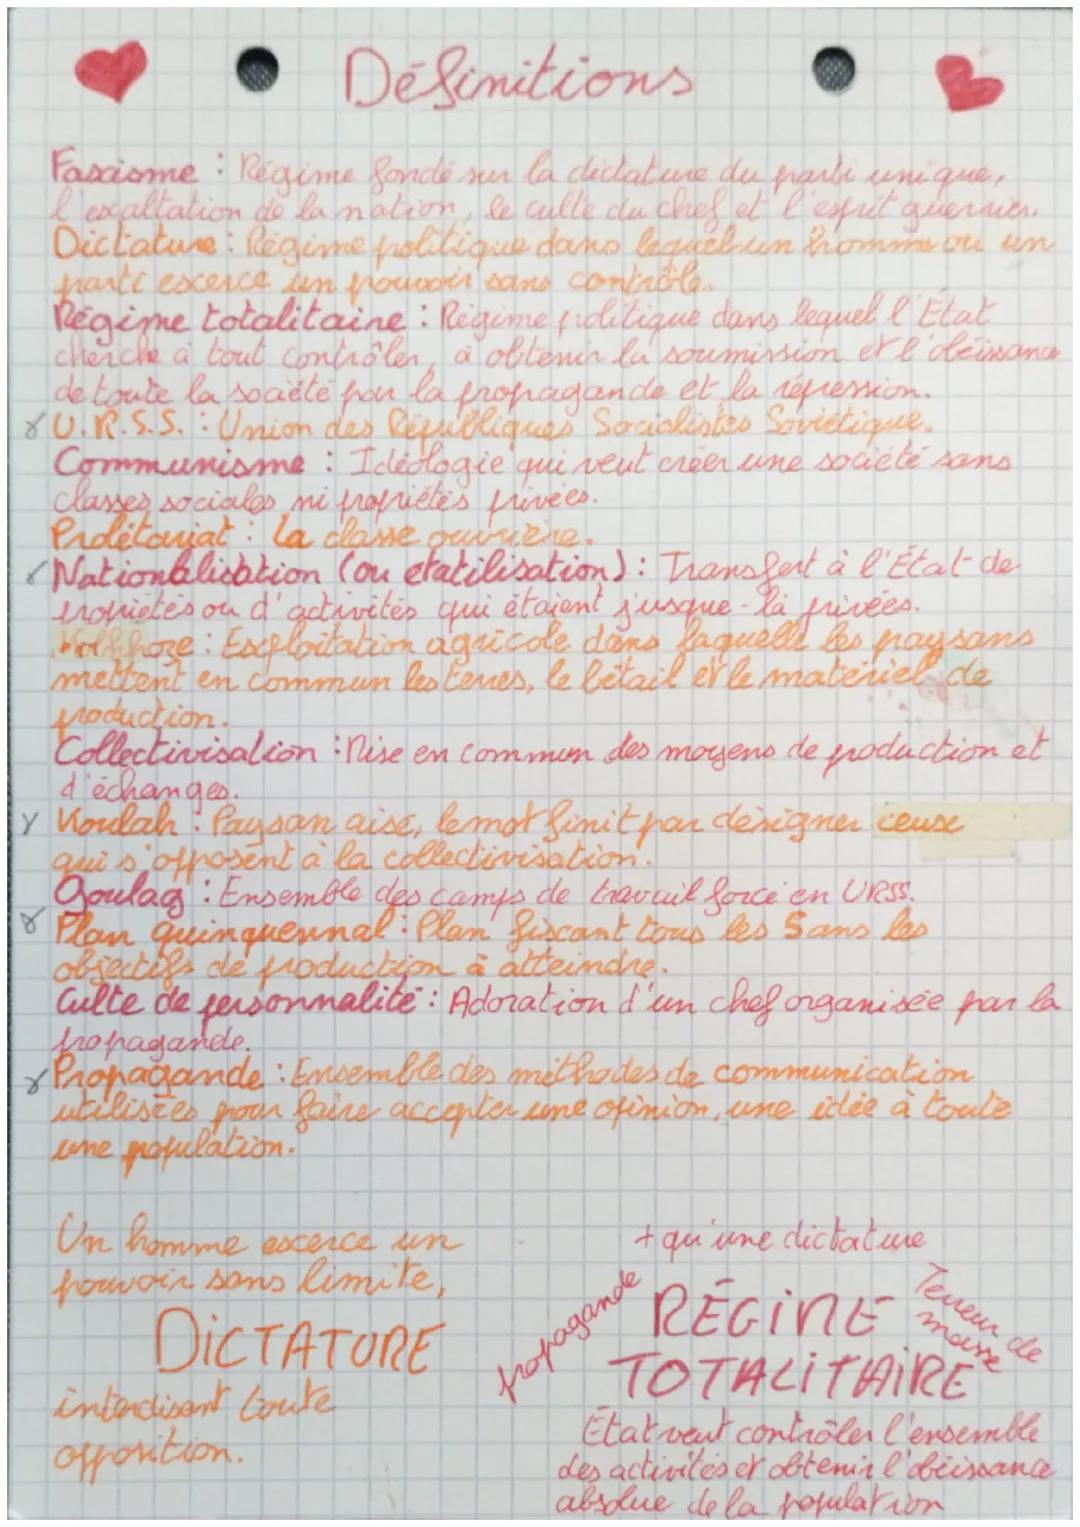 Définitions
Fascisme : Régime fondé sur la dictature du parti unique,
l'exaltation de la nation, le culte du chef et l'esprit guerrier.
Dictature : Régime politique dans lequel un homme ou un
parti excerce un pouvoir sans contrôle.
Régime totalitaire : Régime politique dans lequel l'État
cherche à tout contrôler, à obtenir la soumission et l'obéissance
de toute la société par la propagande et la répression.
U.R.S.S. : Union des Républiques Socialistes Soviétique.
Communisme : Idéologie qui veut créer une société sans
classes sociales ni propriétés privées.
Prolétariat : La classe ouvrière.
Nationalisation (ou étatilisation) : Transfert à l'État de
propriétés ou d'activités qui étaient jusque-là privées.
Kolkhoze : Exploitation agricole dans laquelle les paysans
mettent en commun les terres, le bétail et le matériel de
production.
Collectivisation : Mise en commun des moyens de production et
d'échanges.
Koulak : Paysan aisé, le mot finit par désigner ceuse
qui s'opposent à la collectivisation.
Goulag : Ensemble des camps de travail forcé en URSS.
Plan quinquennal : Plan fiscant tous les 5 ans les
objectifs de production à atteindre.
Culte de personnalité : Adoration d'un chef organisée par la
propagande.
Propagande : Ensemble des méthodes de communication
utilisées pour faire accepter une opinion, une idée à toute
une population.
Un homme excerce un
pouvoir sans limite,
DICTATURE
interdisant toute
opposition.
+ qu'une dictature
propagande
RÉGIME
Terreur de
masse
TOTALITAIRE
État veut contrôler l'ensemble
des activités et obtenir l'obéissance
absolue de la population